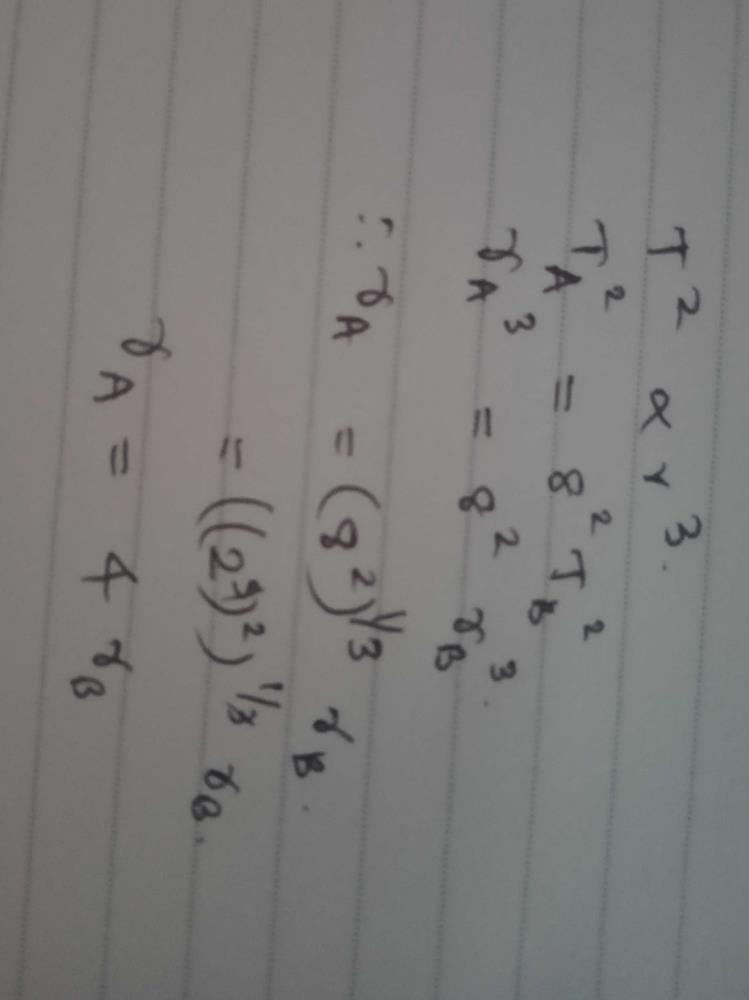 T² ∝ r³.
T_A² = 8² T_B²
r_A³ = 8² r_B³.
∴ r_A = (8²)^{1/3} r_B.
= ((2^{3})²)^{1/3} r_B.
r_A = 4 r_B